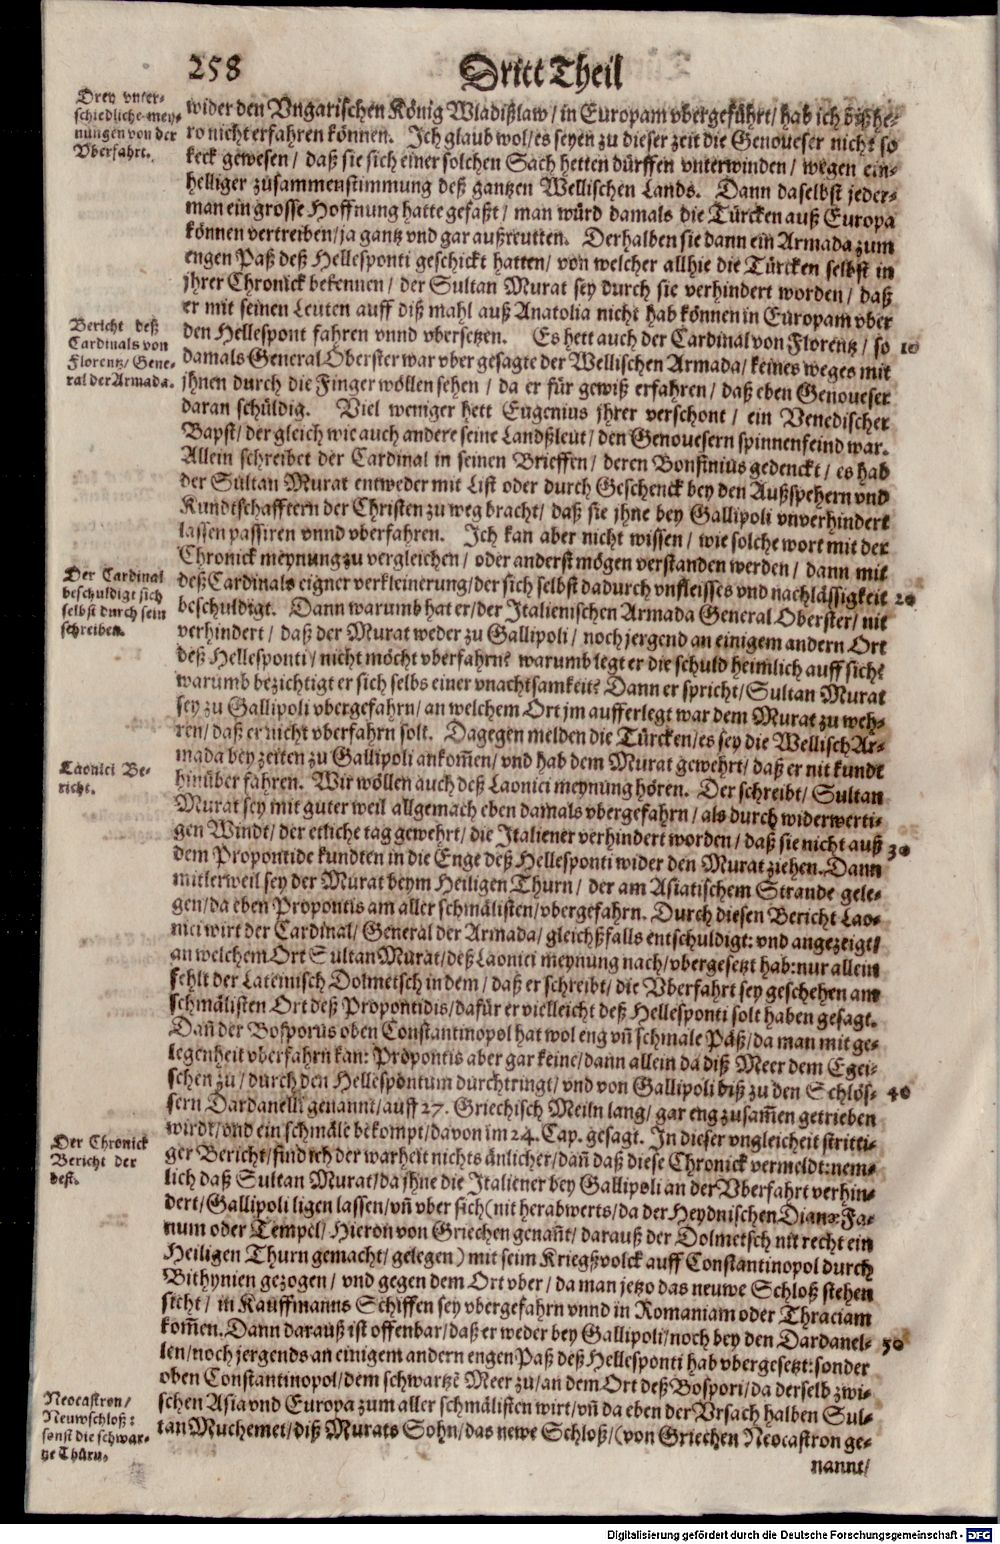 258
Dritt Theil
Drey vnter-
schiedliche mey-
nungen von der
Vberfahrt.
wider den Vngarischen König Wladißlaw / in Europam vbergeführt / hab ich bißhe-
ro nicht erfahren können. Ich glaub wol / es seyen zu dieser zeit die Genoueser nicht so
keck gewesen / daß sie sich einer solchen Sach hetten dürffen vnterwinden / wegen ein-
helliger zusammenstimmung deß gantzen Wellischen Lands. Dann daselbst jeder-
man ein grosse Hoffnung hatte gefaßt / man würd damals die Türcken auß Europa
können vertreiben / ja gantz vnd gar außreutten. Derhalben sie dann ein Armada zum
engen Paß deß Hellesponti geschickt hatten / von welcher allhie die Türcken selbst in
jhrer Chronick bekennen / der Sultan Murat sey durch sie verhindert worden / daß
er mit seinen Leuten auff diß mahl auß Anatolia nicht hab können in Europam vber
den Hellespont fahren vnnd vbersetzen. Es hett auch der Cardinal von Florentz / so 10
Bericht deß
Cardinals von
Florentz / Gene-
ral der Armada.
damals General Oberster war vber gesagte der Wellischen Armada / keines weges mit
jhnen durch die Finger wöllen sehen / da er für gewiß erfahren / daß eben Genoueser
daran schüldig. Viel weniger hett Eugenius jhrer verschont / ein Venedischer
Bapst / der gleich wie auch andere seine Landßleut / den Genouesern spinnenfeind war.
Allein schreibet der Cardinal in seinen Brieffen / deren Bonfinius gedenckt / es hab
der Sultan Murat entweder mit List oder durch Geschenck bey den Außspehern vnd
Kundtschafftern der Christen zu weg bracht / daß sie jhne bey Gallipoli vnverhindert
lassen passiren vnnd vberfahren. Ich kan aber nicht wissen / wie solche wort mit der
Chronick meynung zu vergleichen / oder anderst mögen verstanden werden / dann mit
Der Cardinal
beschuldigt sich
selbst durch sein
schreiben.
deß Cardinals eigner verkleinerung / der sich selbst dadurch vnfleisses vnd nachlässigkeit 20
beschuldigt. Dann warumb hat er / der Italienischen Armada General Oberster / nit
verhindert / daß der Murat weder zu Gallipoli / noch jergend an einigem andern Ort
deß Hellesponti / nicht möcht vberfahrn? warumb legt er die schuld heimlich auff sich?
warumb bezichtigt er sich selbs einer vnachtsamkeit? Dann er spricht / Sultan Murat
sey zu Gallipoli vbergefahrn / an welchem Ort jm aufferlegt war dem Murat zu weh-
ren / daß er nicht vberfahrn solt. Dagegen melden die Türcken / es sey die Wellisch Ar-
mada bey zeiten zu Gallipoli ankom̃en / vnd hab dem Murat gewehrt / daß er nit kundt
Laonici Be-
richt.
hinüber fahren. Wir wöllen auch deß Laonici meynung hören. Der schreibt / Sultan
Murat sey mit guter weil allgemach eben damals vbergefahrn / als durch widerwerti-
gen Windt / der etliche tag gewehrt / die Italiener verhindert worden / daß sie nicht auß 30
dem Propontide kundten in die Enge deß Hellesponti wider den Murat ziehen. Dann
mitlerweil sey der Murat beym Heiligen Thurn / der am Asiatischem Strande gele-
gen / da eben Propontis am aller schmälisten / vbergefahrn. Durch diesen Bericht Lao-
nici wirt der Cardinal / General der Armada / gleichßfalls entschuldigt: vnd angezeigt /
an welchem Ort Sultan Murat / deß Laonici meynung nach / vbergesetzt hab: nur allein
fehlt der Lateinisch Dolmetsch in dem / daß er schreibt / die Vberfahrt sey geschehen am
schmälisten Ort deß Propontidis / dafür er vielleicht deß Hellesponti solt haben gesagt.
Dañ der Bosporus oben Constantinopol hat wol eng vñ schmale Päß / da man mit ge-
legenheit vberfahrn kan: Propontis aber gar keine / dann allein da diß Meer dem Egei-
schen zu / durch den Hellespontum durchtringt / vnd von Gallipoli biß zu den Schlös- 40
sern Dardanelli genannt / auff 27. Griechisch Meiln lang / gar eng zusam̃en getrieben
wirdt / vnd ein schmäle bekompt / davon im 24. Cap. gesagt. In dieser vngleicheit stritti-
Der Chronick
Bericht der
best.
ger Bericht / find ich der warheit nichts änlicher / dañ daß diese Chronick vermeldt: nem-
lich daß Sultan Murat / da jhne die Italiener bey Gallipoli an der Vberfahrt verhin-
dert / Gallipoli ligen lassen / vñ vber sich (nit herabwerts / da der Heydnischen Dianæ Fa-
num oder Tempel / Hieron von Griechen genañt / darauß der Dolmetsch nit recht ein
Heiligen Thurn gemacht / gelegen) mit seim Kriegßvolck auff Constantinopol durch
Bithynien gezogen / vnd gegen dem Ort vber / da man jetzo das neuwe Schloß stehen
sicht / in Kauffmanns Schiffen sey vbergefahrn vnnd in Romaniam oder Thraciam
kom̃en. Dann darauß ist offenbar / daß er weder bey Gallipoli / noch bey den Dardanel- 50
len / noch jergends an einigem andern engen Paß deß Hellesponti hab vbergesetzt: sonder
oben Constantinopol / dem schwartzẽ Meer zu / an dem Ort deß Bospori / da derselb zwi-
Neocastron /
Neuwschloß:
sonst die schwar-
tze Thürn.
schen Asia vnd Europa zum aller schmälisten wirt / vñ da eben der Vrsach halben Sul-
tan Muchemet / diß Murats Sohn / das newe Schloß / (von Griechen Neocastron ge-
nannt /
Digitalisierung gefördert durch die Deutsche Forschungsgemeinschaft - DFG